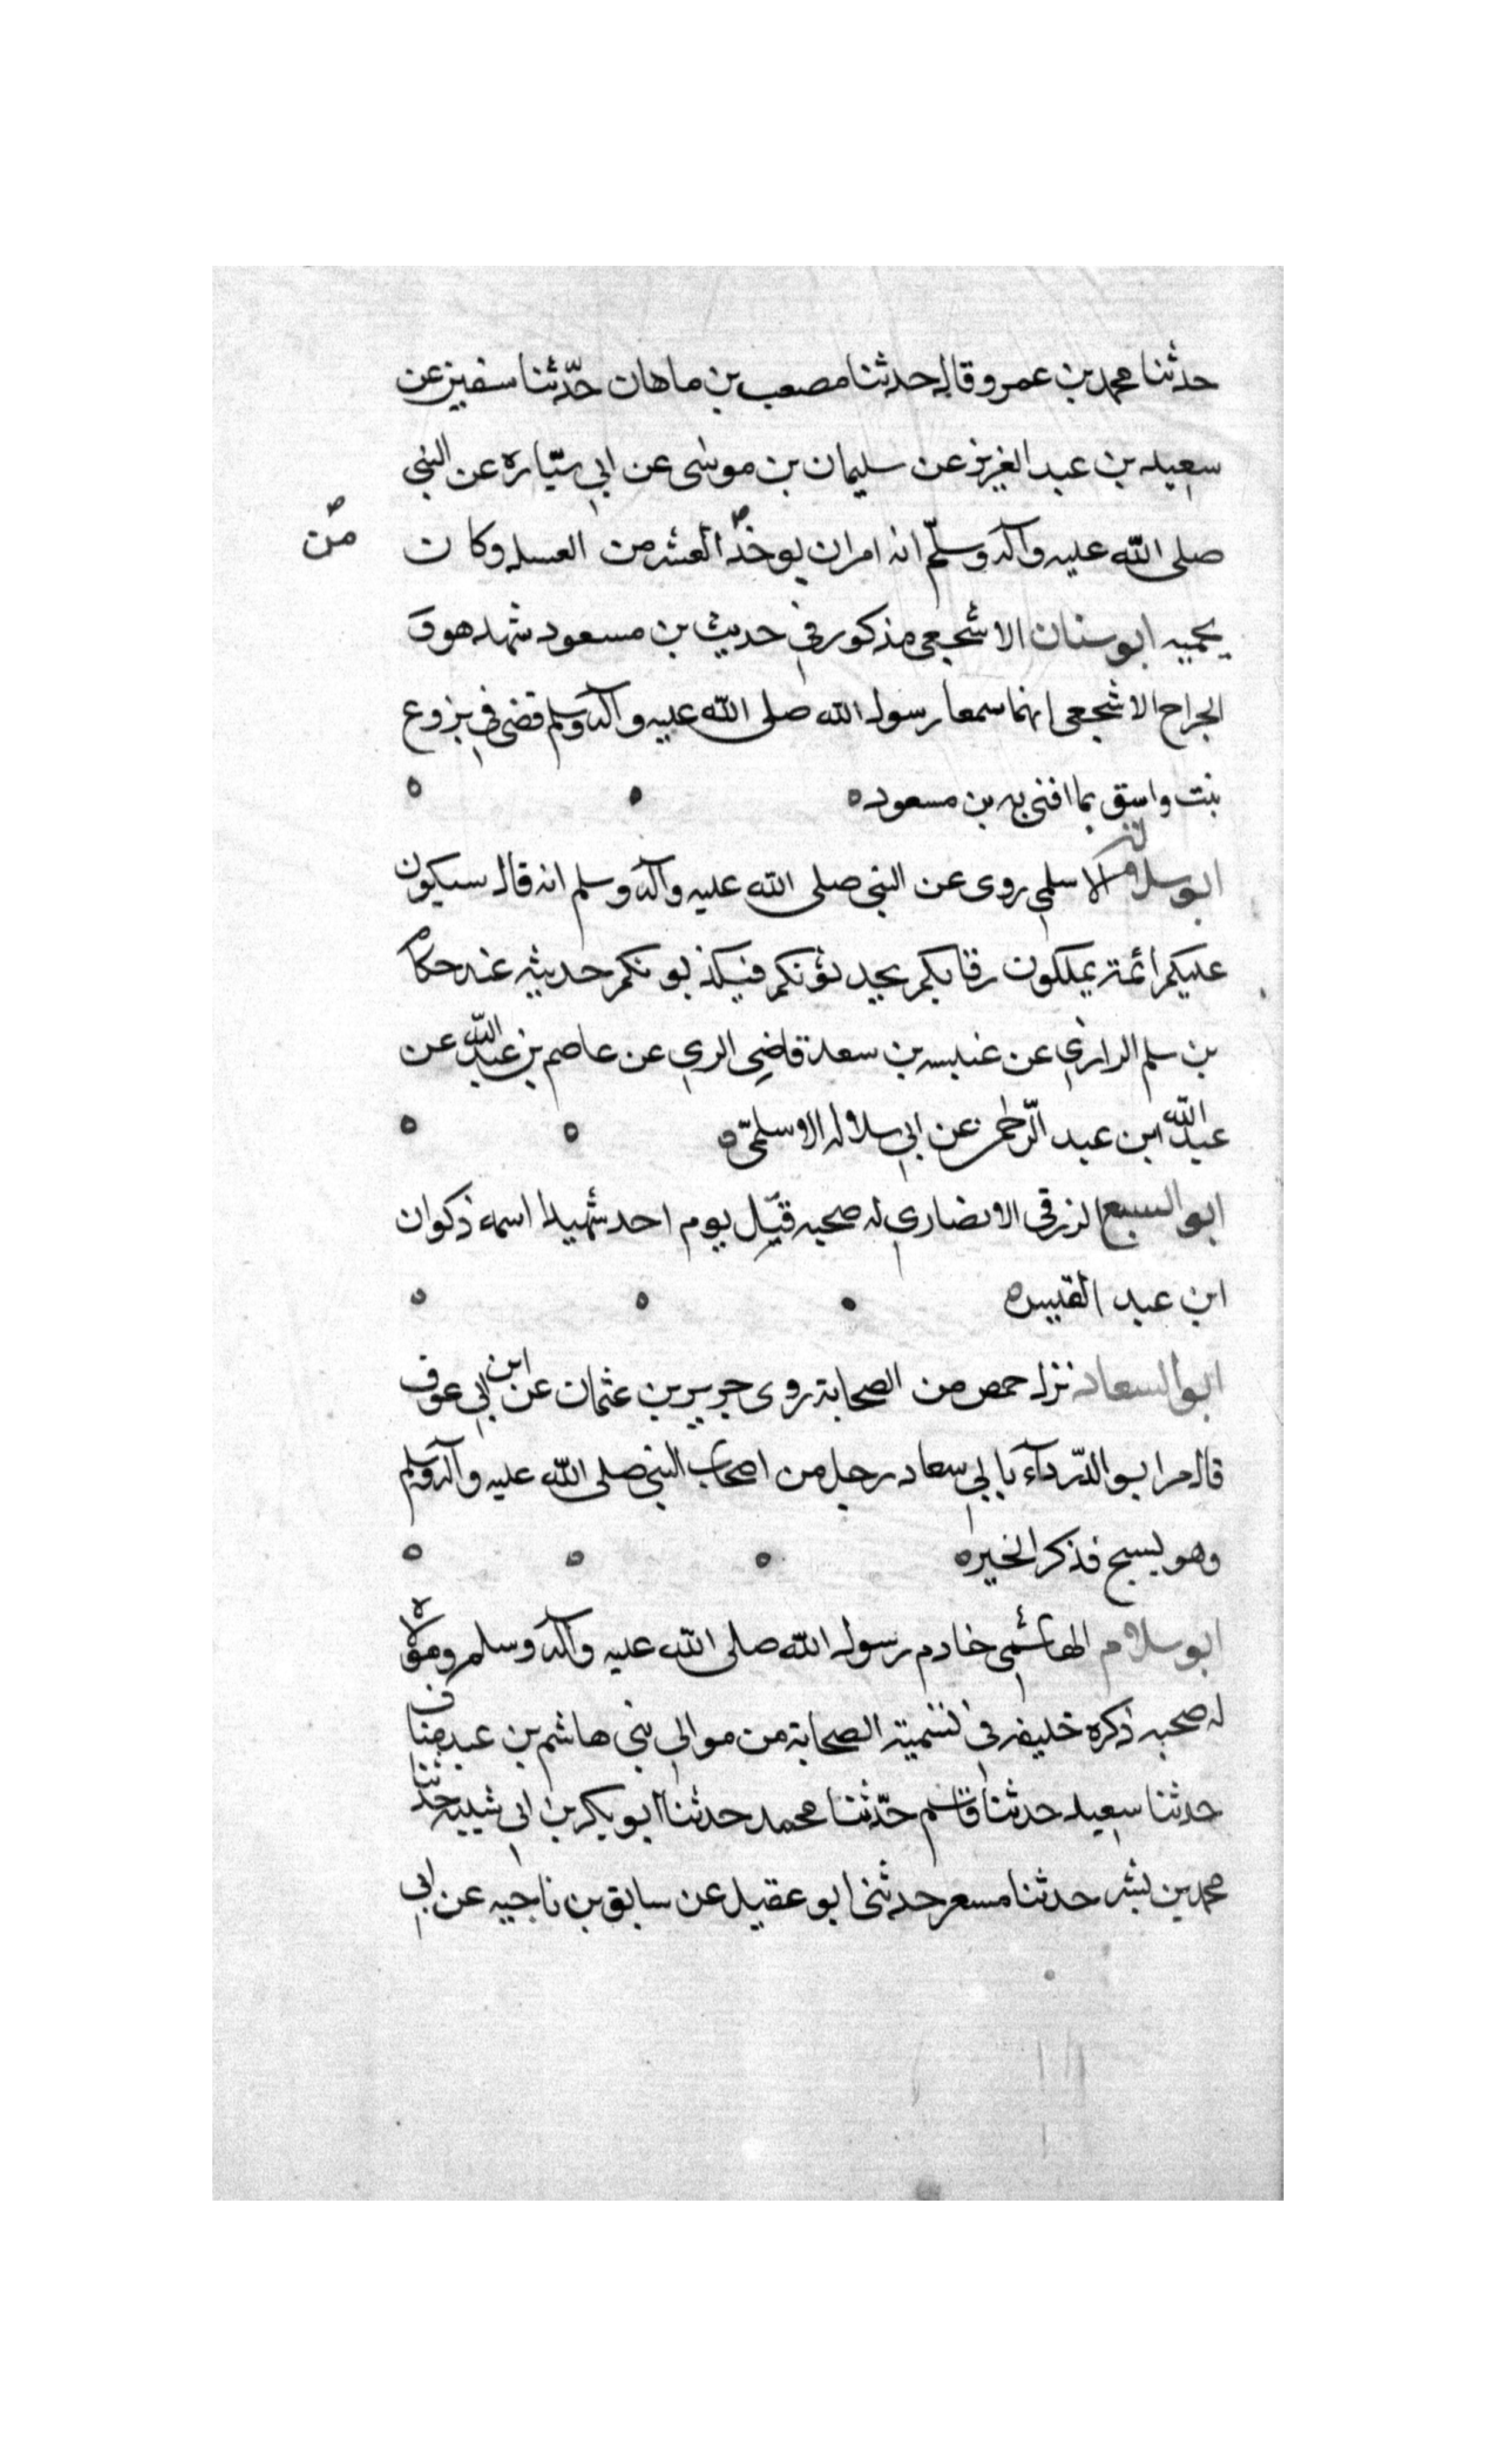 حدثنا محمد بن عمرو قال حدثنا مصعب بن ماهان حدّثنا سفين عن
سعيد بن عبد العزيز عن سليمان بن موسى عن ابي سيّاره عن النبي
صلى الله عليه وآله وسلّم انه امر ان يوخذ العشر من العسل وكان
من
يحميه ابو سنان الاشجعي مذكور في حديث بن مسعود شهد هو و
الجراح الاشجعي انهما سمعا رسول الله صلى الله عليه وآله وسلم قضى في بزوع
بنت واسق بما افتى به بن مسعود
ابو سلالة الاسلمي روى عن النبي صلى الله عليه وآله وسلم انه قال سيكون
عليكم ائمة يملكون رقابكم يحدثونكم فيكذبونكم حديثه عند حكام
بن سلم الرازي عن عنبسه بن سعد قاضي الري عن عاصم بن عبيد الله عن
عبد الله ابن عبد الرّحمن عن ابي سلاله الاسلميّ
ابو السبع الزرقي الانصاري له صحبه قتل يوم احد شهيدا اسمه ذكوان
ابن عبد القيس
ابو السعاد نزل حمص من الصحابة روى جرير بن عثمان عن ابن ابي عوف
قال مر ابو الدّردآء بابي سعاد رجل من اصحاب النبي صلى الله عليه وآله وسلم
وهو يسبح فذكر الخير
ابو سلام الهاشمي خادم رسول الله صلى الله عليه وآله وسلم ومولاه
له صحبه ذكره خليفه في تسمية الصحابة من موالي بني هاشم بن عبد مناف
حدثنا سعيد حدثنا قاسم حدّثنا محمد حدثنا ابو بكر بن ابي شيبه حدثنا
محمد بن بشر حدثنا مسعر حدثني ابو عقيل عن سابق بن ناجيه عن ابي